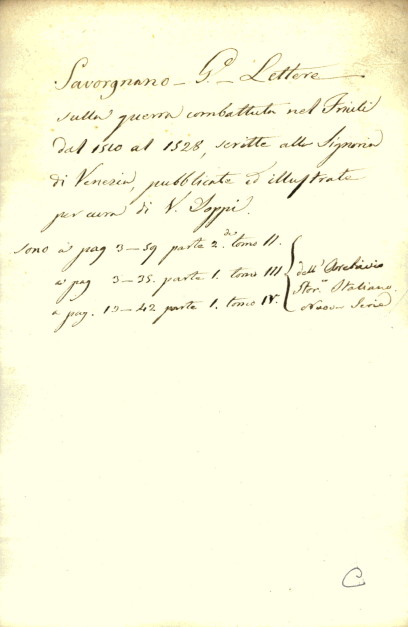 Savorgnano – G.º – Lettere
sulla guerra combattuta nel Friuli
dal 1510 al 1528, scritte alla Signoria
di Venezia, pubblicate ed illustrate
per cura di V. Joppi.
sono a pag 3–59 parte 2.da tomo II.
a pag 3–35. parte 1. tomo III
a pag. 13–42 parte 1. tomo IV.
dell' Archivio
Stor.º Italiano.
Nuova Serie
C